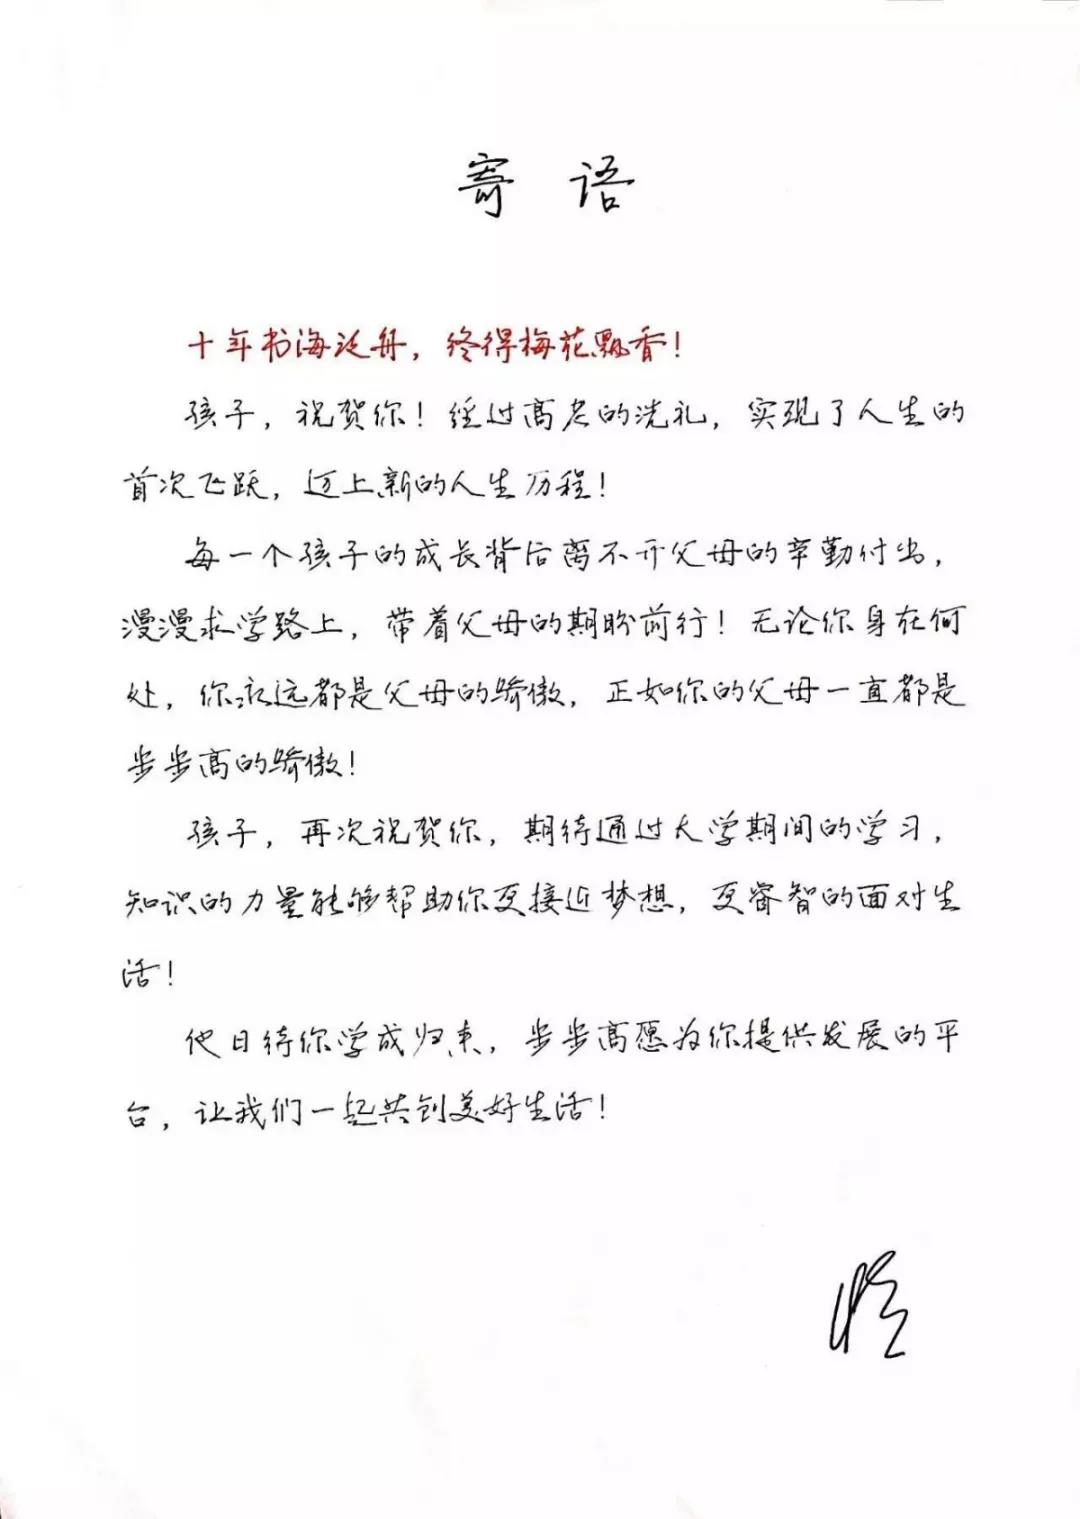 寄语
十年书海泛舟，终得梅花飘香！
孩子，祝贺你！经过高考的洗礼，实现了人生的
首次飞跃，迈上新的人生历程！
每一个孩子的成长背后离不开父母的辛勤付出，
漫漫求学路上，带着父母的期盼前行！无论你身在何
处，你永远都是父母的骄傲，正如你的父母一直都是
步步高的骄傲！
孩子，再次祝贺你，期待通过大学期间的学习，
知识的力量能够帮助你更接近梦想，更睿智的面对生
活！
他日待你学成归来，步步高愿为你提供发展的平
台，让我们一起共创美好生活！